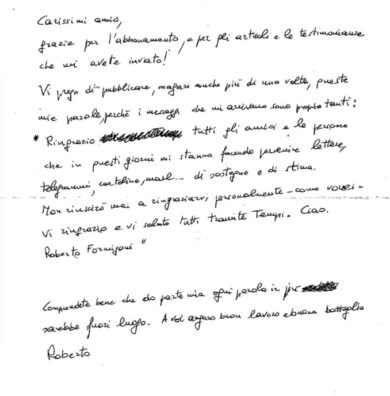 Carissimi amici,
grazie per l'abbonamento, e per gli articoli e le testimonianze
che mi avete inviato!
Vi prego di pubblicare, magari anche più di una volta, queste
mie parole, perché i messaggi che mi arrivano sono proprio tanti:
"Ringrazio tutti gli amici e le persone
che in questi giorni mi stanno facendo pervenire lettere,
telegrammi, cartoline, mail... di sostegno e di stima.
Non riuscirò mai a ringraziarvi personalmente - come vorrei -
Vi ringrazio e vi saluto tutti tramite Tempi. Ciao.
Roberto Formigoni"
Comprendete bene che da parte mia ogni parola in più
sarebbe fuori luogo. A voi auguro buon lavoro e buona battaglia
Roberto